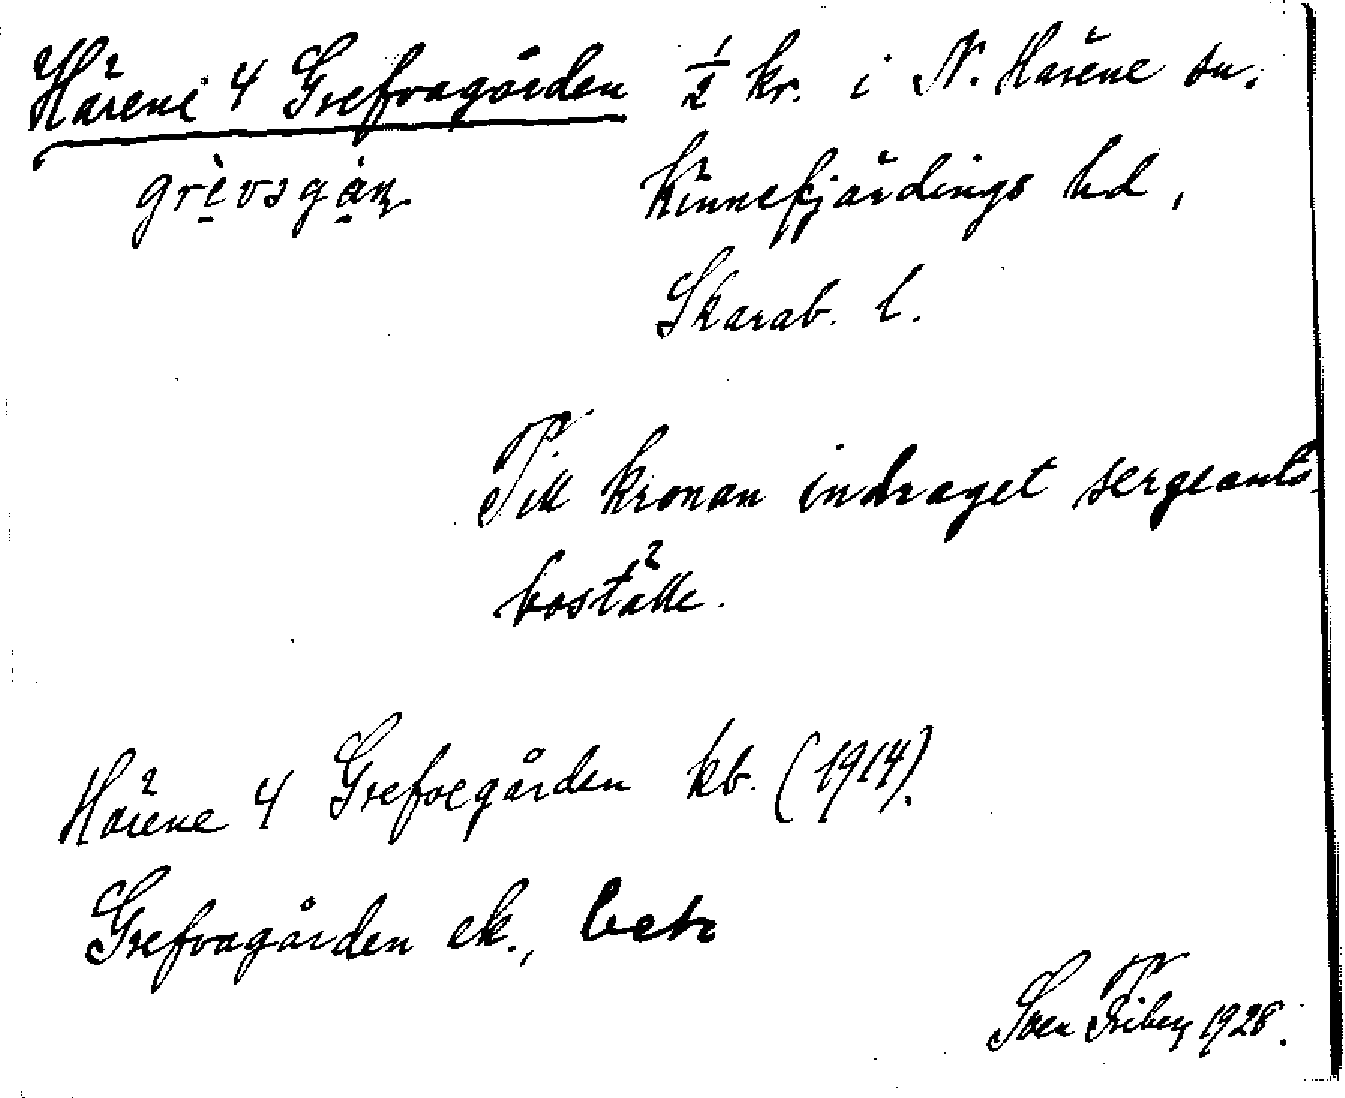 Härene 4 Grefvagården ½ kr. i N. Härene sn.
grevsgan Kinnefjärdings hd,
Skarab. l.
Till kronan indraget sergeants-
boställe.
Härene 4 Grefvegården kb. (1914).
Grefvagården ek., bet
Sven Friberg 1928.